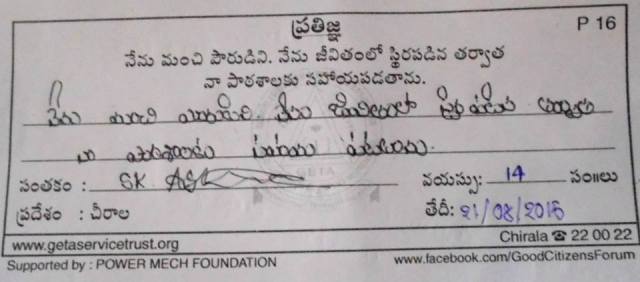 ప్రతిజ్ఞ P 16
నేను మంచి పౌరుడిని. నేను జీవితంలో స్థిరపడిన తర్వాత
నా పాఠశాలకు సహాయపడతాను.
నేను మంచి పౌరుడిని. నేను జీవితంలో స్థిర పడిన తర్వాత
నా పాఠశాలకు సహాయ పడతాను.
GETA
సంతకం : SK వయస్సు: 14 సం॥లు
ప్రదేశం : చీరాల తేదీ: 21/08/2015
www.getaservicetrust.org Chirala ☎ 22 00 22
Supported by : POWER MECH FOUNDATION www.facebook.com/GoodCitizensForum